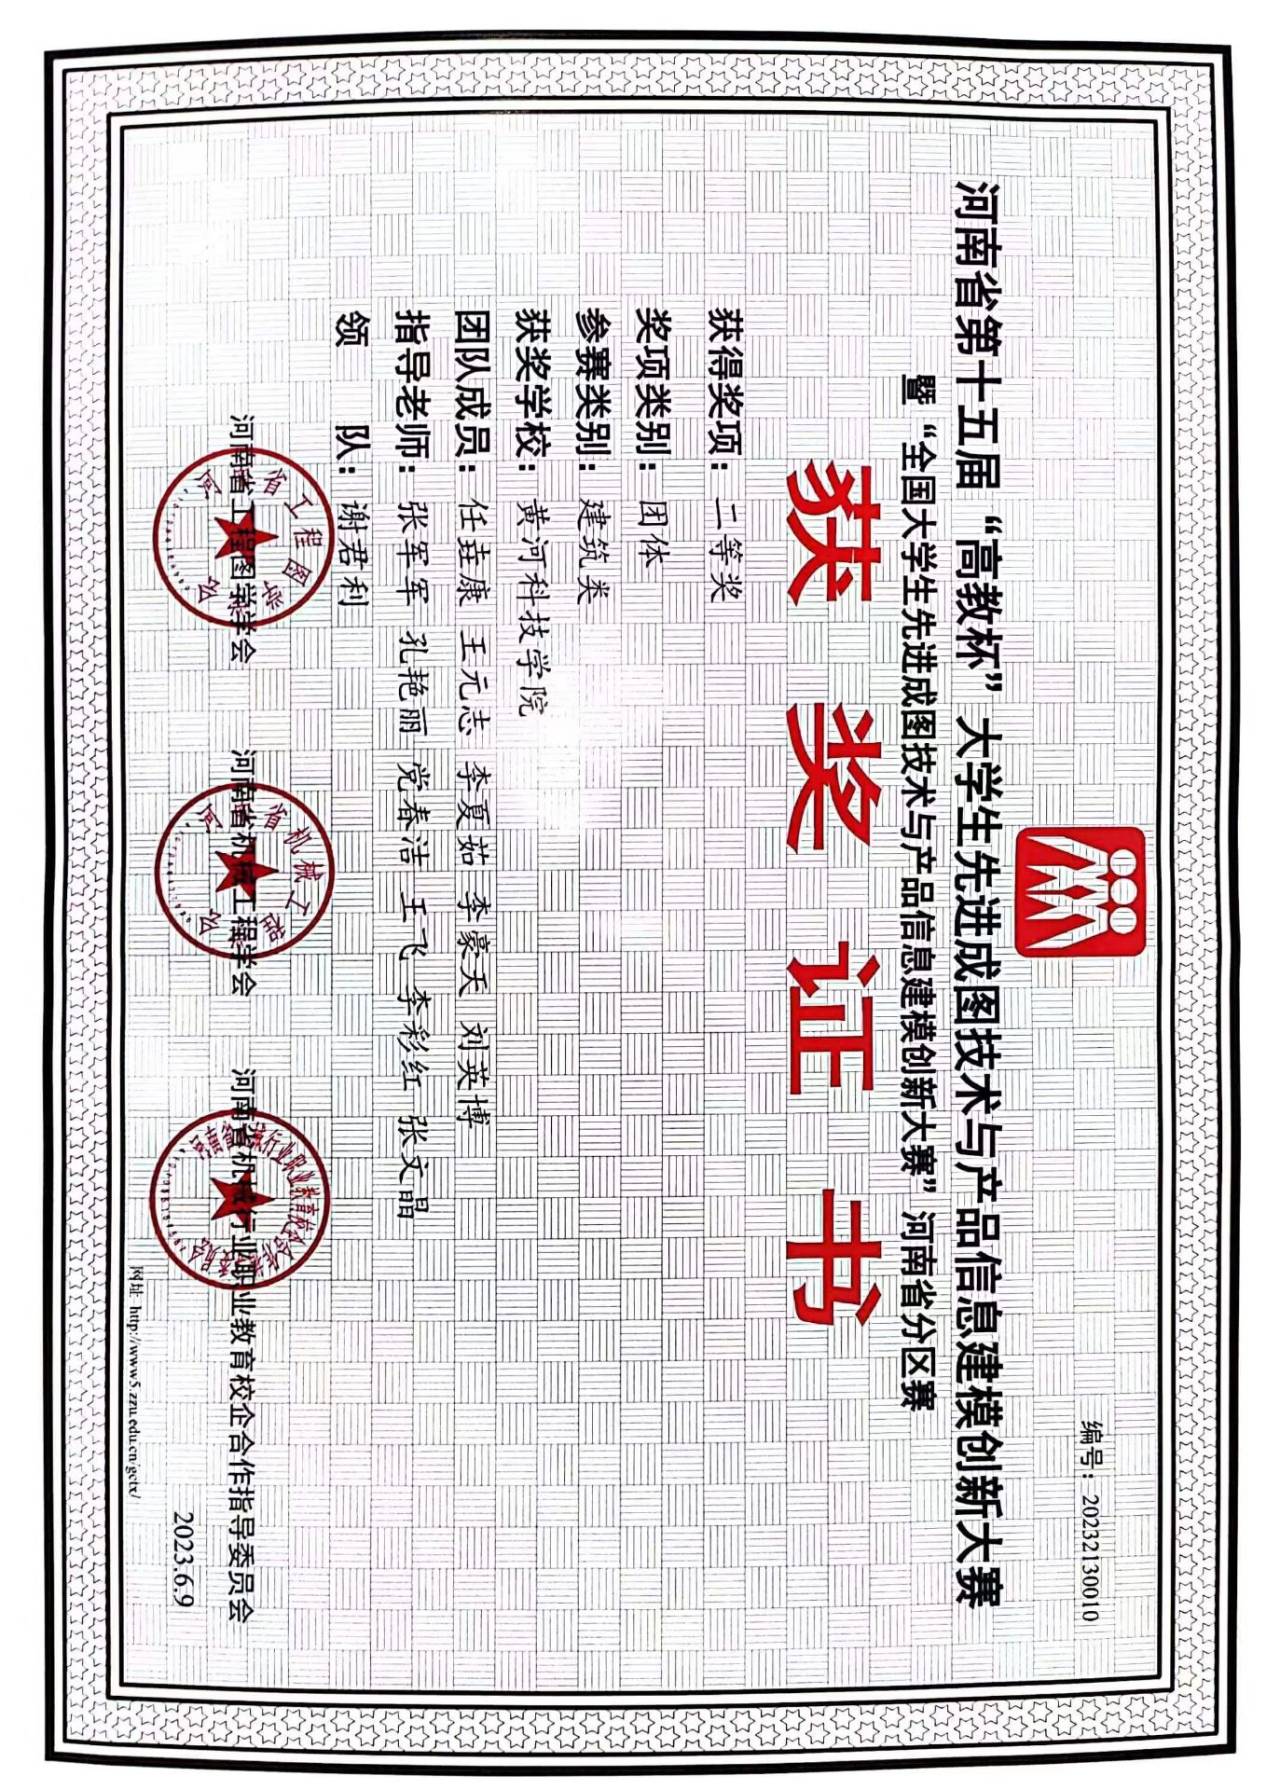 编号：20232130010
河南省第十五届“高教杯”大学生先进成图技术与产品信息建模创新大赛
暨“全国大学生先进成图技术与产品信息建模创新大赛”河南省分区赛
获奖证书
获得奖项：二等奖
奖项类别：团体
参赛类别：建筑类
获奖学校：黄河科技学院
团队成员：任珪康 王元志 李夏茹 李豪天 刘英博
指导老师：张军军 孔艳丽 党春洁 王飞 李彩红 张文晶
领 队：谢君利
河南省工程图学学会 河南省机械工程学会 河南省机械行业职业教育校企合作指导委员会
2023.6.9
网址: http://www5.zzu.edu.cn/gctx/